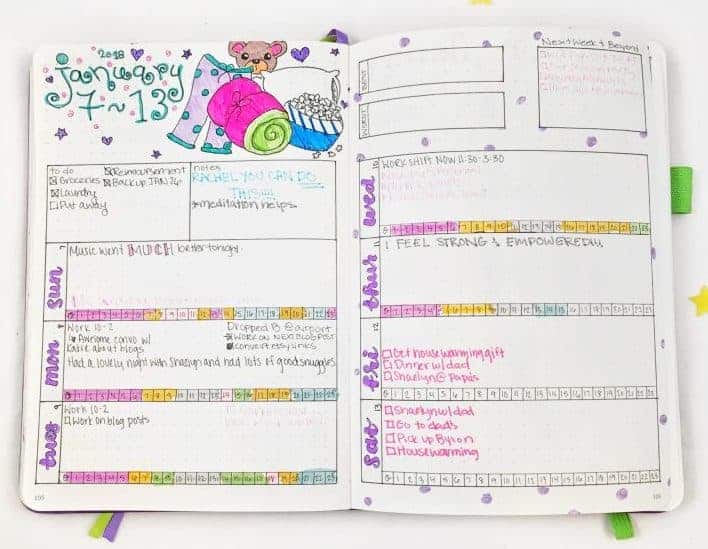 2018
January
7~13
to do
Groceries
Laundry
Put away
Reimbursement
Backup JAN 26
notes
RACHEL YOU CAN DO
THIS!!!!
meditation helps
7
sun
Music went MUCH better tonight.
0 1 2 3 4 5 6 7 8 9 10 11 12 13 14 15 16 17 18 19 20 21 22 23
8
mon
Work 10-2
Awesome convo w/
Katie about blogs
Dropped B @ airport
WORK ON NEXT BLOG POST
convert etsy links
Had a lovely night with Shaelyn and had lots of good snuggles
0 1 2 3 4 5 6 7 8 9 10 11 12 13 14 15 16 17 18 19 20 21 22 23
9
tues
Work 10-2
Work on blog posts
0 1 2 3 4 5 6 7 8 9 10 11 12 13 14 15 16 17 18 19 20 21 22 23
105
Next Week & Beyond
10
wed
WORK SHIFT NOW 11:30-3:30
0 1 2 3 4 5 6 7 8 9 10 11 12 13 14 15 16 17 18 19 20 21 22 23
11
thur
I FEEL STRONG & EMPOWERED!!
0 1 2 3 4 5 6 7 8 9 10 11 12 13 14 15 16 17 18 19 20 21 22 23
12
fri
Get housewarming gift
Dinner w/ dad
Shaelyn @ Papa's
0 1 2 3 4 5 6 7 8 9 10 11 12 13 14 15 16 17 18 19 20 21 22 23
13
sat
Shaelyn w/ dad
Go to dad's
Pick up Byron
Housewarming
0 1 2 3 4 5 6 7 8 9 10 11 12 13 14 15 16 17 18 19 20 21 22 23